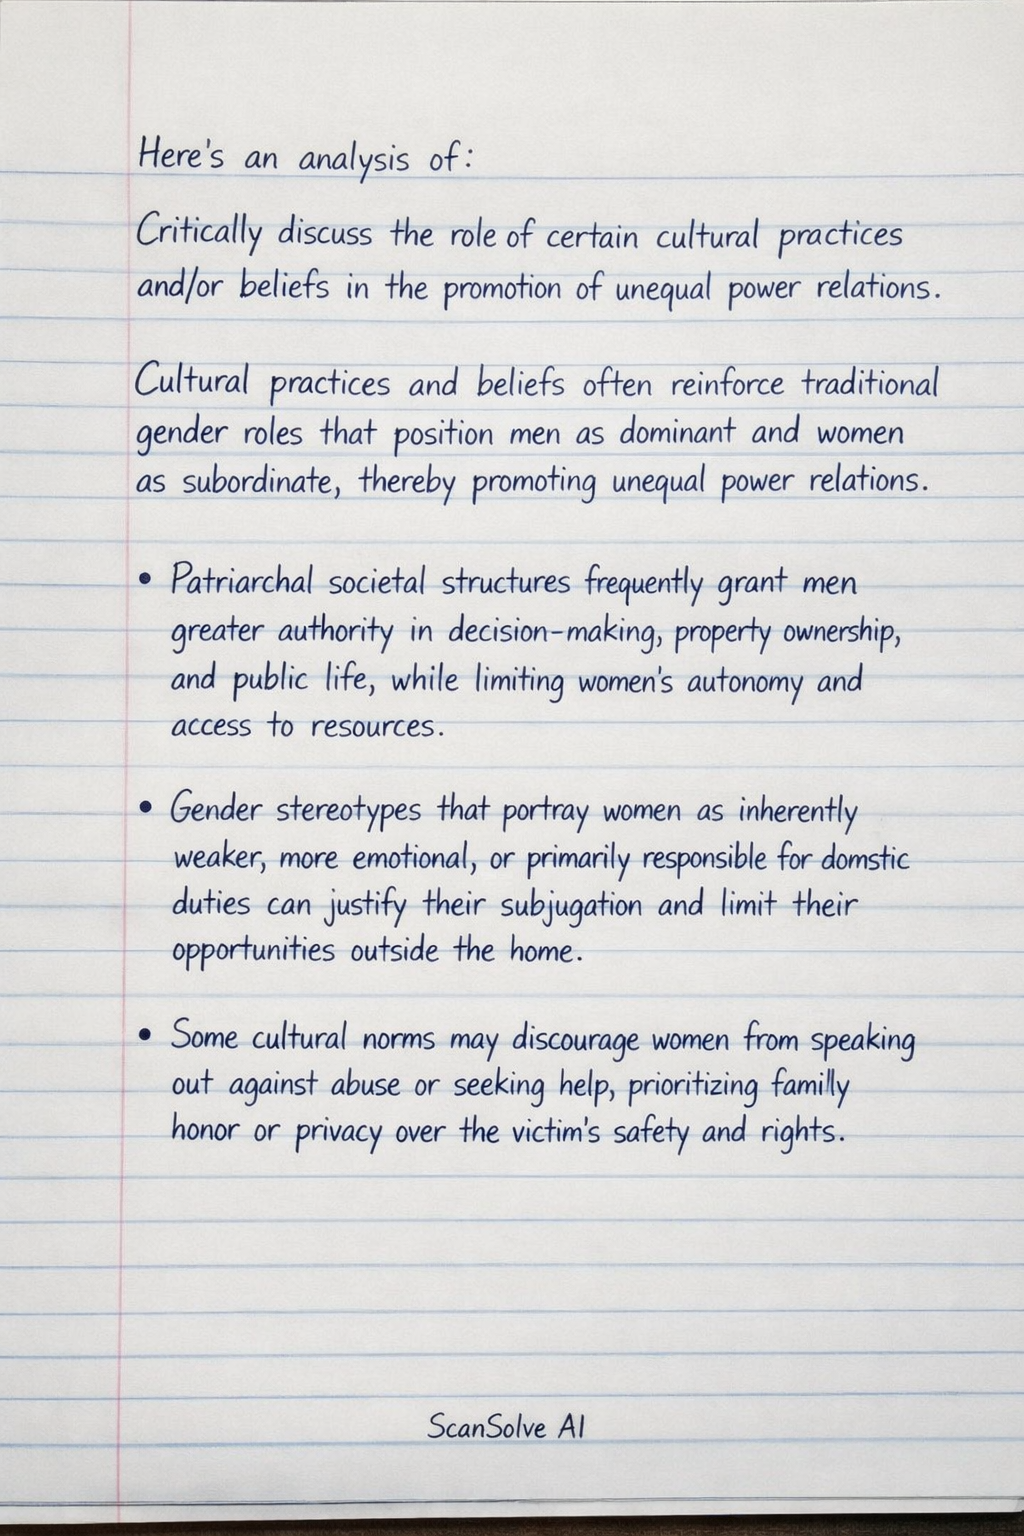 Here's an analysis of:
Critically discuss the role of certain cultural practices
and/or beliefs in the promotion of unequal power relations.
Cultural practices and beliefs often reinforce traditional
gender roles that position men as dominant and women
as subordinate, thereby promoting unequal power relations.
• Patriarchal societal structures frequently grant men
greater authority in decision-making, property ownership,
and public life, while limiting women's autonomy and
access to resources.
• Gender stereotypes that portray women as inherently
weaker, more emotional, or primarily responsible for domstic
duties can justify their subjugation and limit their
opportunities outside the home.
• Some cultural norms may discourage women from speaking
out against abuse or seeking help, prioritizing familly
honor or privacy over the victim's safety and rights.
ScanSolve AI